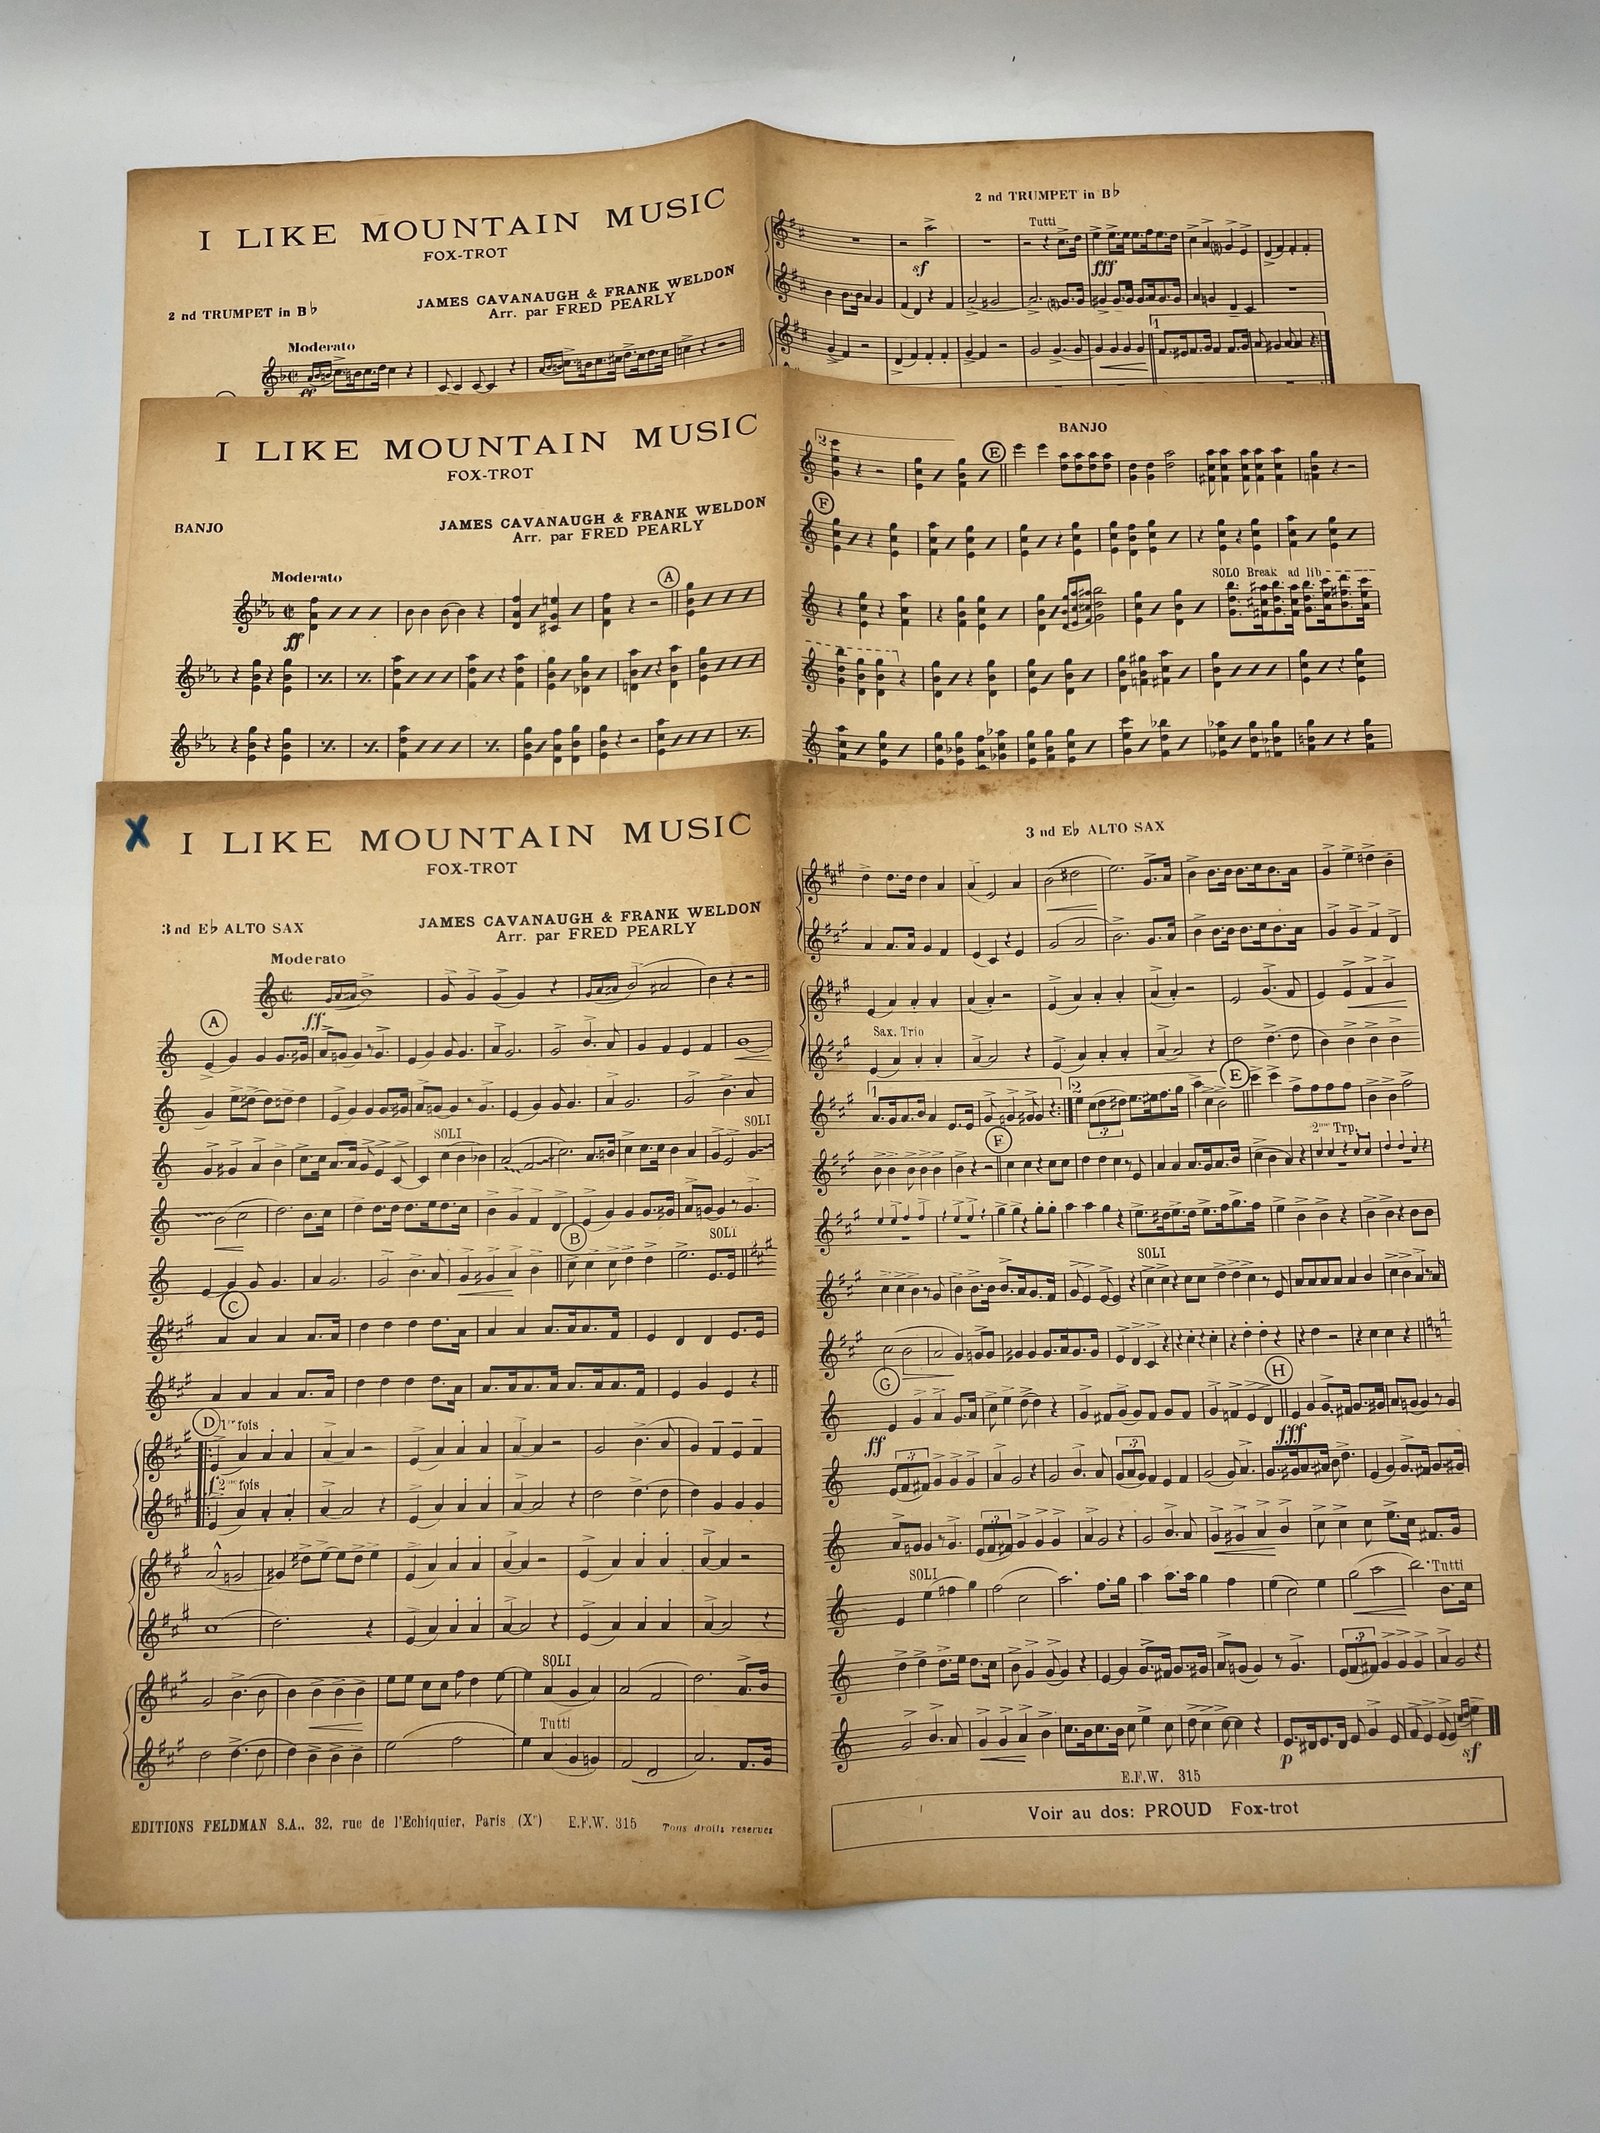 I LIKE MOUNTAIN MUSIC
FOX-TROT
JAMES CAVANAUGH & FRANK WELDON
Arr. par FRED PEARLY
2 nd TRUMPET in B♭
Moderato
ff
2 nd TRUMPET in B♭
Tutti
sf
fff
1
I LIKE MOUNTAIN MUSIC
FOX-TROT
JAMES CAVANAUGH & FRANK WELDON
Arr. par FRED PEARLY
BANJO
Moderato
A
ff
BANJO
2
E
F
SOLO Break ad lib
X
I LIKE MOUNTAIN MUSIC
FOX-TROT
3 nd E♭ ALTO SAX
JAMES CAVANAUGH & FRANK WELDON
Arr. par FRED PEARLY
Moderato
ff
A
SOLI
SOLI
B
SOLI
C
D 1re fois
f 2me fois
SOLI
Tutti
EDITIONS FELDMAN S.A., 32, rue de l'Echiquier, Paris (Xe) E.F.W. 315 Tous droits reserves
3 nd E♭ ALTO SAX
Sax. Trio
1
2
E
3
F
2me Trp.
SOLI
G
H
ff
fff
3
3
3
SOLI
Tutti
3
p
sf
E.F.W. 315
Voir au dos: PROUD Fox-trot